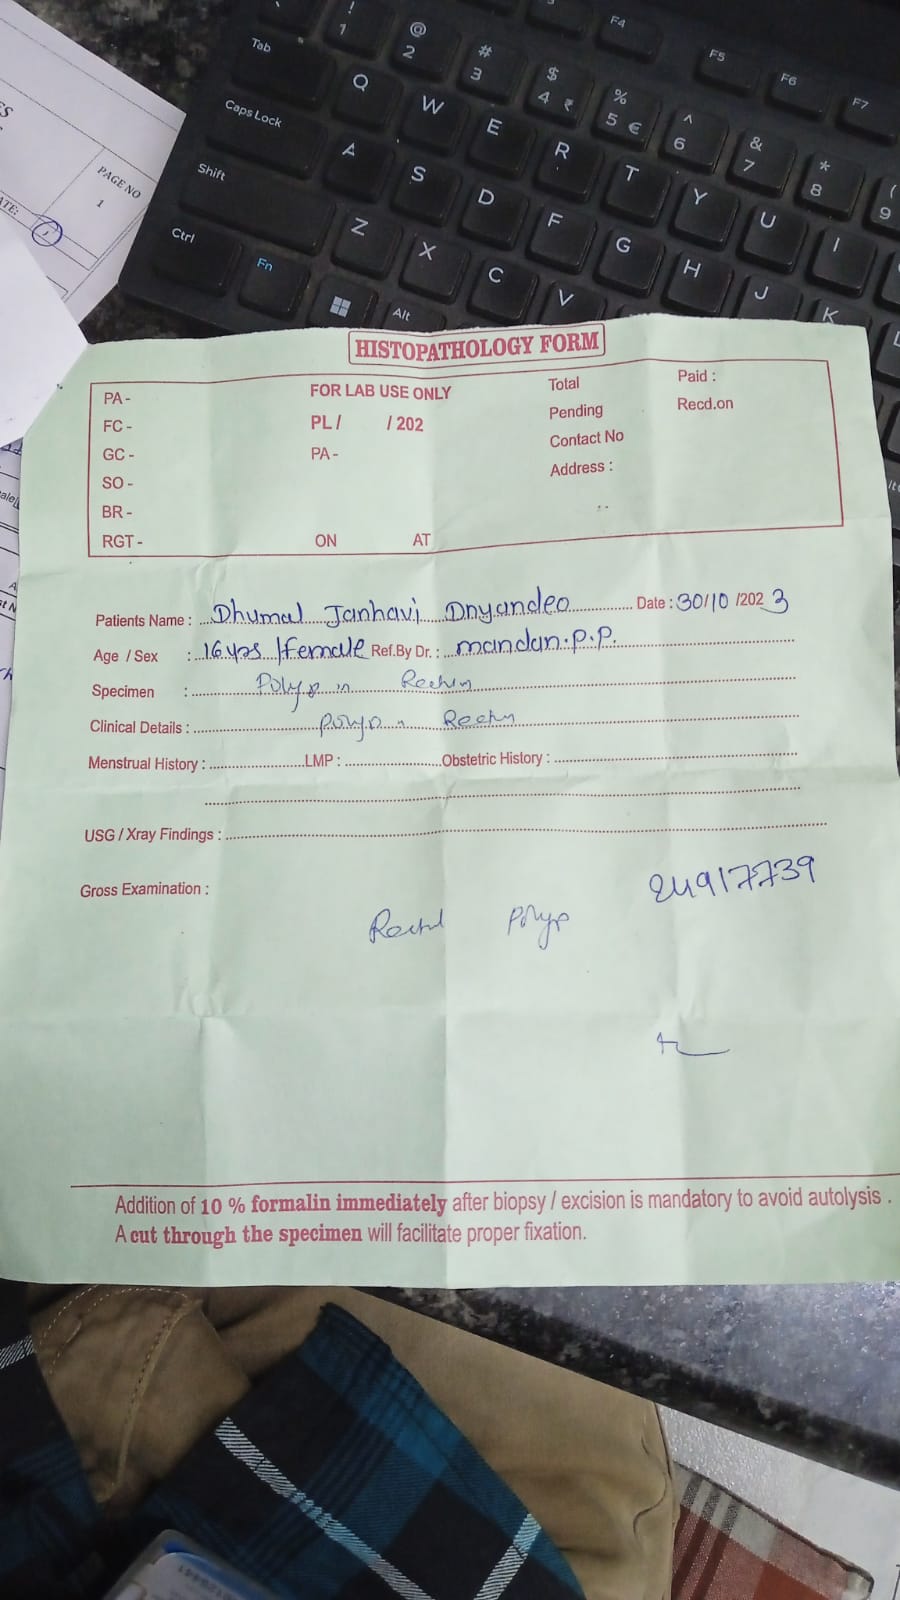 ! 1
@ 2
# 3
$ 4 ₹
% 5 €
^ 6
& 7
* 8
( 9
F4
F5
F6
F7
Tab
Q W E R T Y U I
Caps Lock
A S D F G H J K
Shift
Z X C V
Ctrl
Fn
Alt
PAGE NO
1
HISTOPATHOLOGY FORM
PA - FOR LAB USE ONLY Total Paid :
FC - PL / / 202 Pending Recd.on
GC - PA - Contact No
SO - Address :
BR -
RGT - ON AT
Patients Name : Dhumal Janhavi Dnyandeo Date : 30/10 /202 3
Age / Sex : 16 yrs /Female Ref.By Dr. : mandan.p.p.
Specimen : Polyp in Rectum
Clinical Details : polyp in Rectum
Menstrual History : LMP : Obstetric History :
USG / Xray Findings :
Gross Examination : 24917739
Rectal Polyp
Addition of 10 % formalin immediately after biopsy / excision is mandatory to avoid autolysis .
A cut through the specimen will facilitate proper fixation.